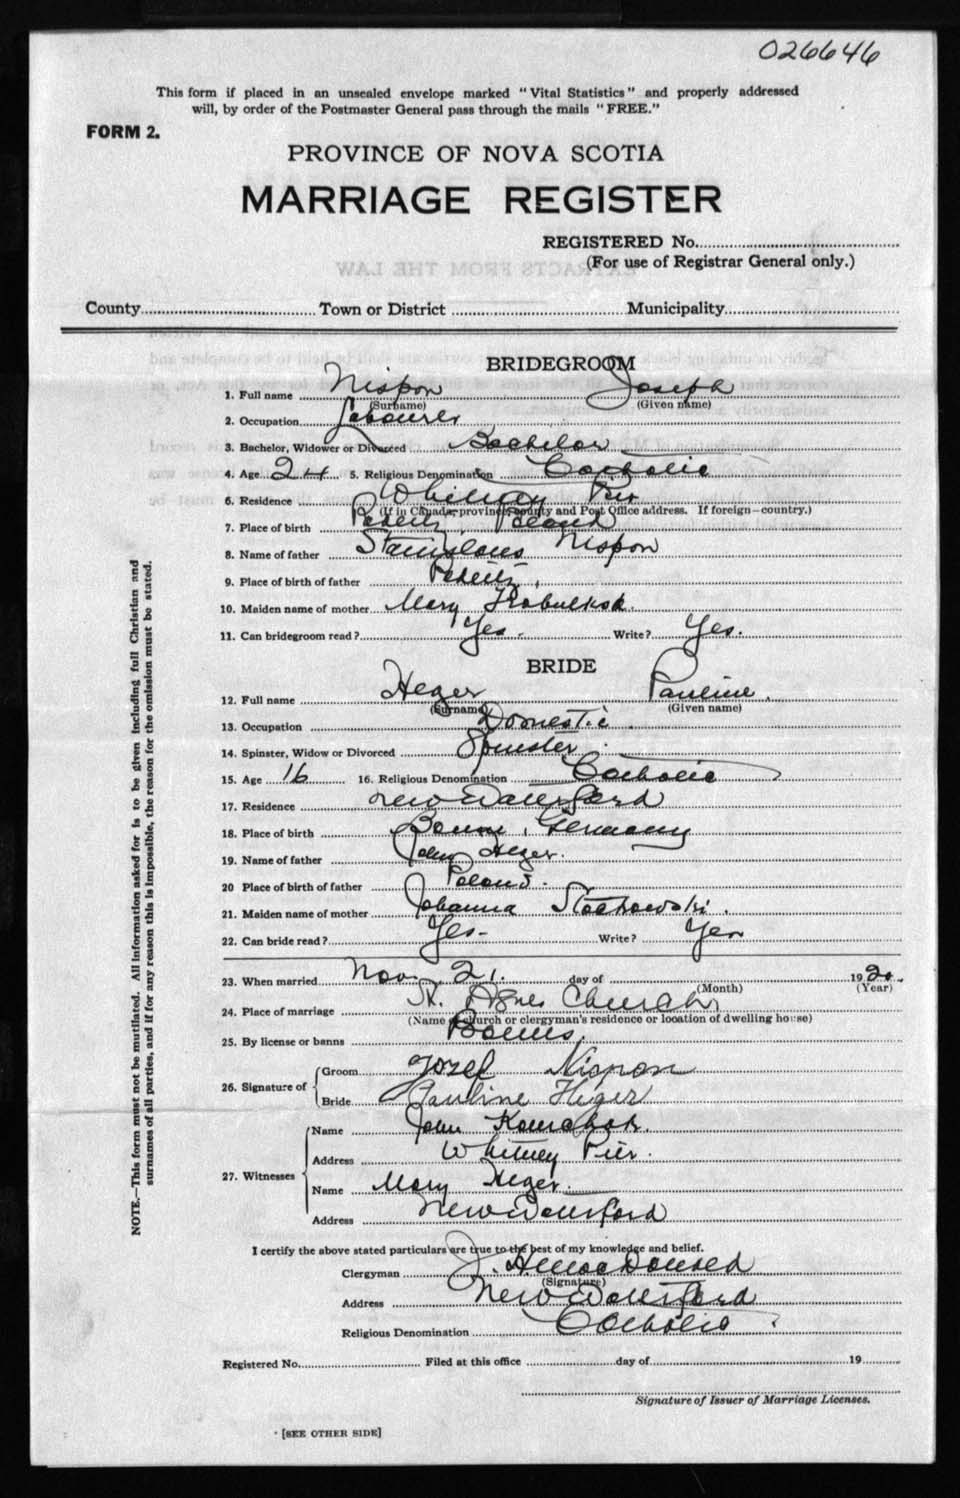 026646
This form if placed in an unsealed envelope marked "Vital Statistics" and properly addressed
will, by order of the Postmaster General pass through the mails "FREE."
FORM 2.
PROVINCE OF NOVA SCOTIA
MARRIAGE REGISTER
REGISTERED No.
(For use of Registrar General only.)
County Town or District Municipality
BRIDEGROOM
1. Full name Nispon Joseph
(Surname) (Given name)
2. Occupation Labourer
3. Bachelor, Widower or Divorced Bachelor
4. Age 24 5. Religious Denomination Catholic
6. Residence Whitney Pier
(If in Canada, province, county and Post Office address. If foreign—country.)
7. Place of birth Poland
8. Name of father Stanislaus Nispon
9. Place of birth of father
10. Maiden name of mother Mary
11. Can bridegroom read? Yes. Write? Yes.
BRIDE
12. Full name Heger Pauline.
(Surname) (Given name)
13. Occupation Domestic
14. Spinster, Widow or Divorced Spinster
15. Age 16 16. Religious Denomination Catholic
17. Residence New Waterford
18. Place of birth Germany
19. Name of father John Heger.
20 Place of birth of father Poland.
21. Maiden name of mother Johanna Stachowski.
22. Can bride read? Yes- Write? Yes
23. When married Nov. 21. day of 1920.
(Month) (Year)
24. Place of marriage St. Agnes Church,
(Name of church or clergyman's residence or location of dwelling house)
25. By license or banns Banns,
26. Signature of Groom Jozef Nispon
Bride Pauline Heger
27. Witnesses Name John
Address Whitney Pier.
Name Mary Heger.
Address New Waterford
I certify the above stated particulars are true to the best of my knowledge and belief.
Clergyman J. H. MacDonald
(Signature)
Address New Waterford
Religious Denomination Catholic
Registered No. Filed at this office day of 19
Signature of Issuer of Marriage Licenses.
[SEE OTHER SIDE]
NOTE.—This form must not be mutilated. All information asked for is to be given including full Christian and
surnames of all parties, and if for any reason this is impossible, the reason for the omission must be stated.